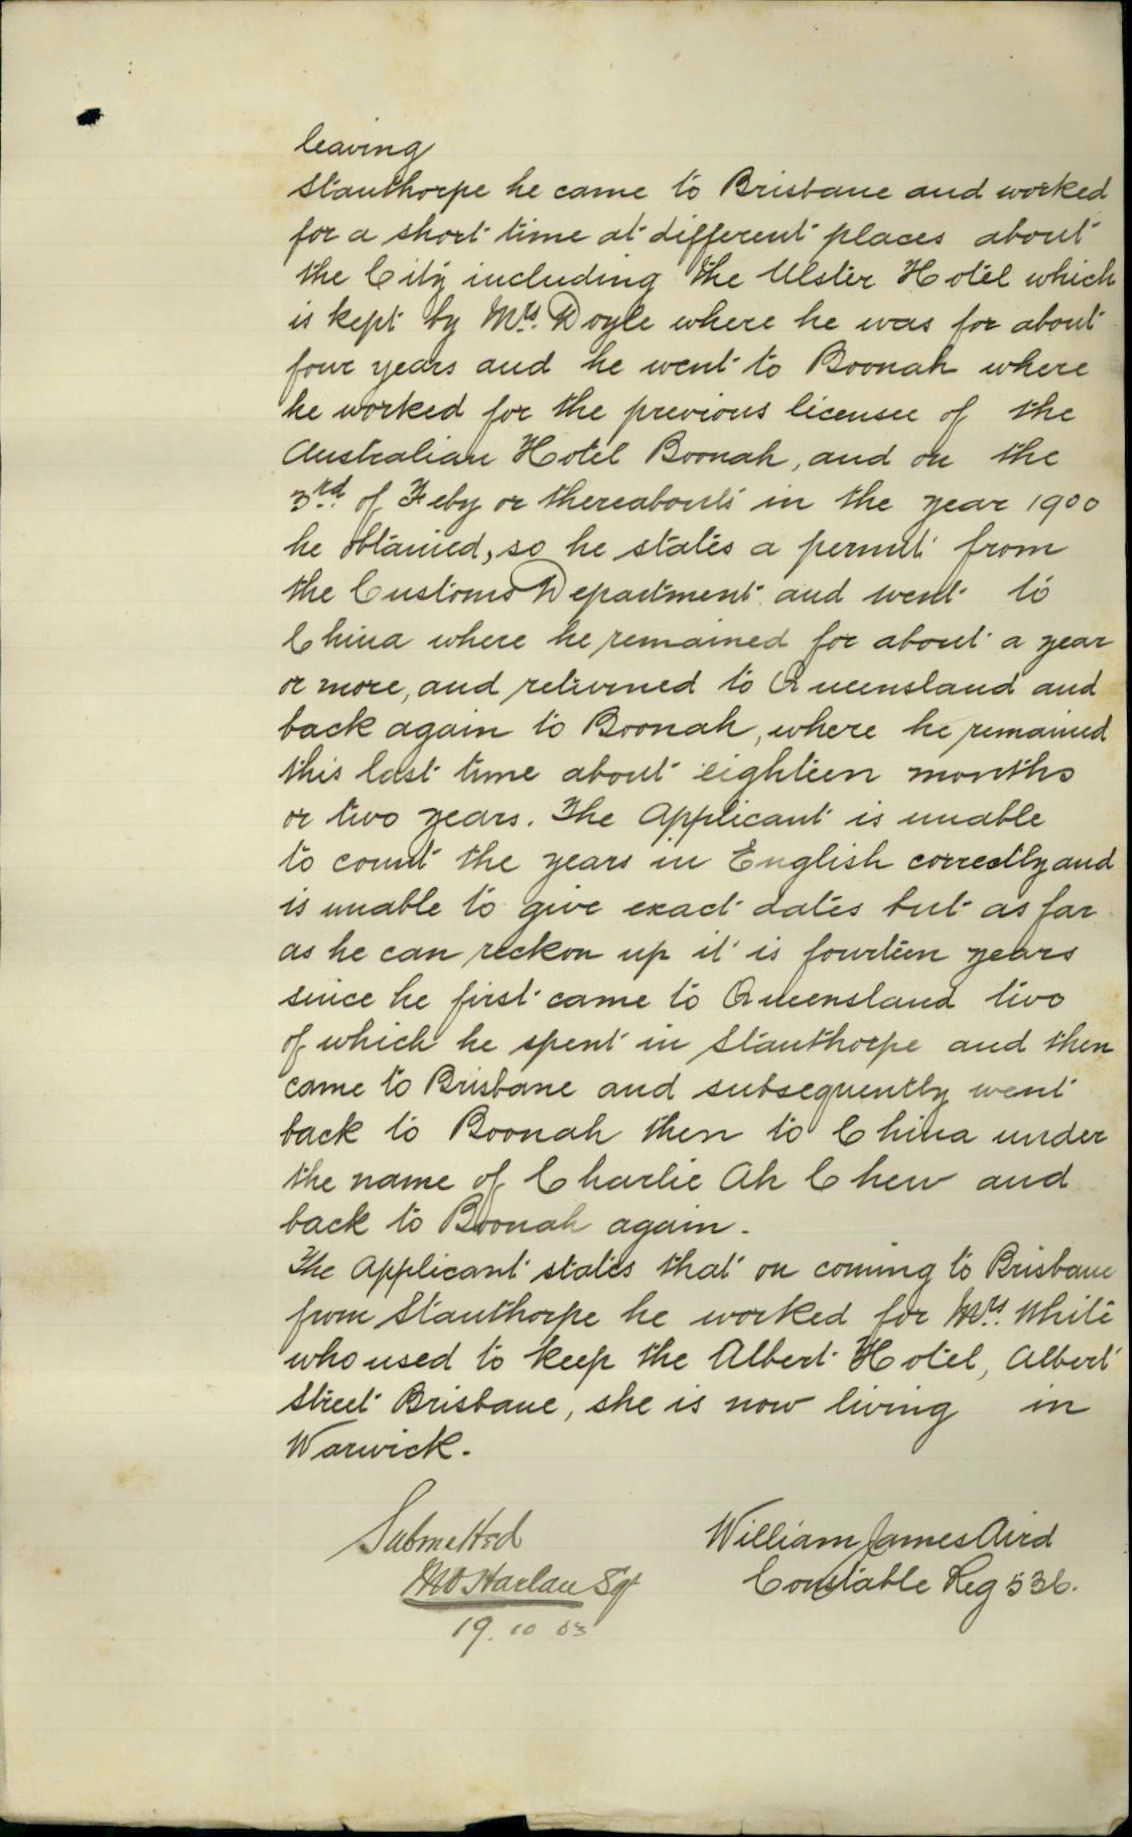 leaving
Stanthorpe he came to Brisbane and worked
for a short time at different places about
the City including the Ulster Hotel which
is kept by Mrs. Doyle where he was for about
four years and he went to Boonah where
he worked for the previous licensee of the
Australian Hotel Boonah, and on the
3rd. of Feby or thereabouts in the year 1900
he obtained, so he states a permit from
the Customs Department and went to
China where he remained for about a year
or more, and returned to Queensland and
back again to Boonah, where he remained
this last time about eighteen months
or two years. The Applicant is unable
to count the years in English correctly and
is unable to give exact dates but as far
as he can reckon up it is fourteen years
since he first came to Queensland two
of which he spent in Stanthorpe and then
came to Brisbane and subsequently went
back to Boonah then to China under
the name of Charlie Ah Chew and
back to Boonah again.
The Applicant states that on coming to Brisbane
from Stanthorpe he worked for Mrs. White
who used to keep the Albert Hotel, Albert
Street Brisbane, she is now living in
Warwick.
Submitted William James Aird
Harlan Sgt Constable Reg 536.
19.10 03